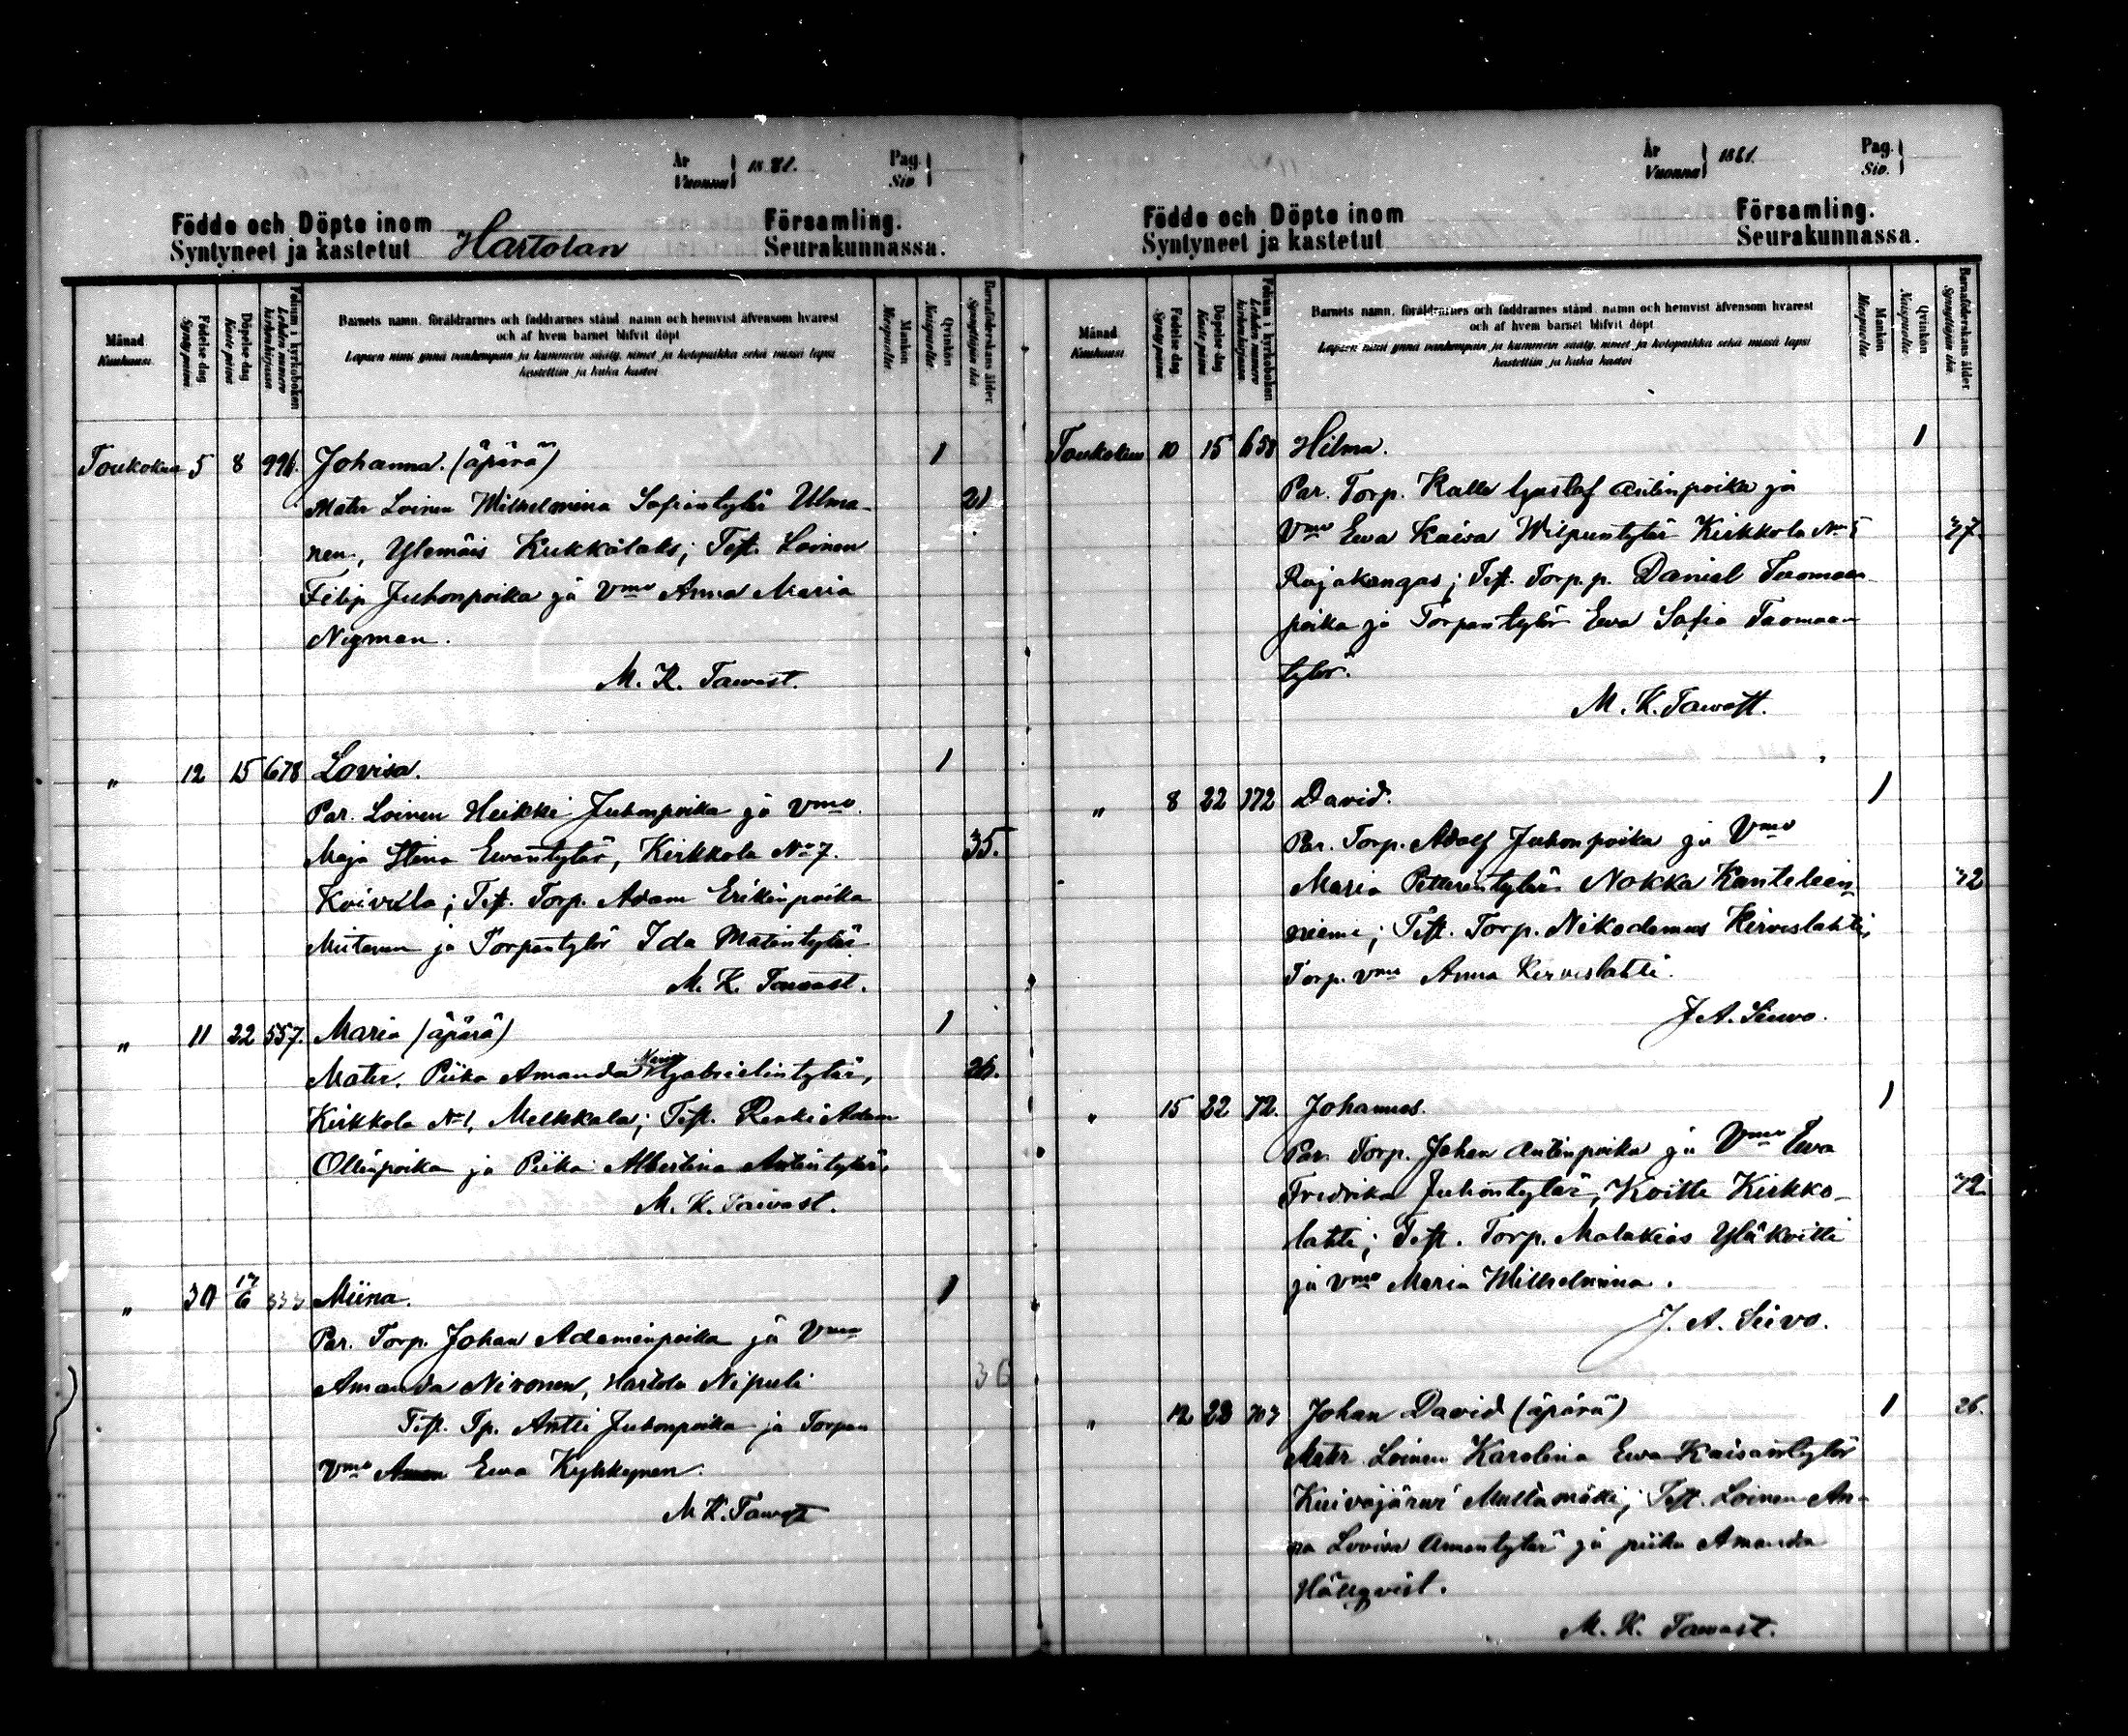 År
Vuonna } 1881.
Pag.
Siv. }
Födde och Döpte inom
Syntyneet ja kastetut Hartolan
Församling.
Seurakunnassa.
Månad Kuukausi
Födelse dag Synty päivä
Döpelse dag Kaste päivä
Folium i kyrkoboken Lehden numero kirkonkirjassa
Barnets namn, föräldrarnes och faddrarnes stånd, namn och hemvist äfvensom hvarest
och af hvem barnet blifvit döpt
Lapsen nimi ynnä vanhempain ja kummein sääty, nimet ja kotopaikka sekä missä lapsi
kastettiin ja kuka kastoi
Mankön Miespuolta.
Qvinkön Naispuolta.
Barnaföderskans ålder Synnyttäjän ikä.
Toukokuu 5 8 996. Johanna. (äpärä) 1
Mater Loinen Wilhelmina Sofiantytär Ulma- 21
nen, Ylemäis Kukkolaks; Test. Loinen
Filip Juhonpoika ja Vmo Anna Maria
Nygman.
M. K. Tawast.
" 12 15 678 Lovisa. 1
Par. Loinen Heikki Juhonpoika ja Vmo
Maja Stina Ewantytär, Kirkkola No 7. 35.
Koivula; Test. Torp. Adam Erikinpoika
Miitenen ja Torpantytör Ida Matintytär
M. K. Tawast.
" 11 22 557. Maria (äpärä) 1
Mater. Piika Amanda Maria Gabrielintytär, 26.
Kirkkola No 1, Melkkala; Test. Renki Adam
Ollinpoika ja Piika Albertina Antintytär.
M. K. Tawast.
" 30 17/6 333 Miina. 1
Par. Torp. Johan Adaminpoika ja Vmo
Amanda Nironen, Hartola Nipuli 36
Test. Tp. Antti Juhonpoika ja Torpan
Vmo Ewa Kykkynen.
M. K. Tawast
År
Vuonna } 1881.
Pag.
Siv. }
Födde och Döpte inom
Syntyneet ja kastetut
Församling.
Seurakunnassa.
Månad Kuukausi
Födelse dag. Synty päivä
Döpelse dag. Kaste päivä
Folium i kyrkoboken Lehden numero kirkonkirjassa.
Barnets namn, föräldrarnes och faddrarnes stånd, namn och hemvist äfvensom hvarest
och af hvem barnet blifvit döpt
Lapsen nimi ynnä vanhempain ja kummein sääty, nimet ja kotopaikka sekä missä lapsi
kastettiin ja kuka kastoi
Mankön Miespuolta
Qvinkön Naispuolta.
Barnaföderskans ålder Synnyttäjän ikä.
Toukokuu 10 15 658 Hilma. 1
Par. Torp. Kalle Gustaf Antinpoika ja
Vmo Ewa Kaisa Wilpuntytär Kirkkola No 5 37.
Rajakangas; Test. Torp. p. Daniel Tuomaan
poika ja Torpantytör Ewa Sofia Tuomaan
tytör.
M. K. Tawast.
" 8 22 172 David. 1
Par. Torp. Adolf Juhonpoika ja Vmo
Maria Petterintytär Nokka Kanteleen 32
niemi; Test. Torp. Nikodemus Kirveslahti,
Torp. vmo Anna Kirveslahti.
J. A. Siivo.
" 15 22 72. Johannes. 1
Par. Torp. Johan Antinpoika ja Vmo Ewa
Fredrika Juhontytär, Koitti Kirkko- 32.
lahti; Test. Torp. Malakias Yläkoitti
ja vmo Maria Wilhelmina.
J. A. Siivo.
" 12 23 703 Johan David (äpärä) 1 26.
Mater Loinen Karolina Ewa Kaisantytär
Kuivajärwi Multamäki; Test. Loinen An-
na Lovisa Amantytär ja piika Amanda
Hällqvist.
M. K. Tawast.